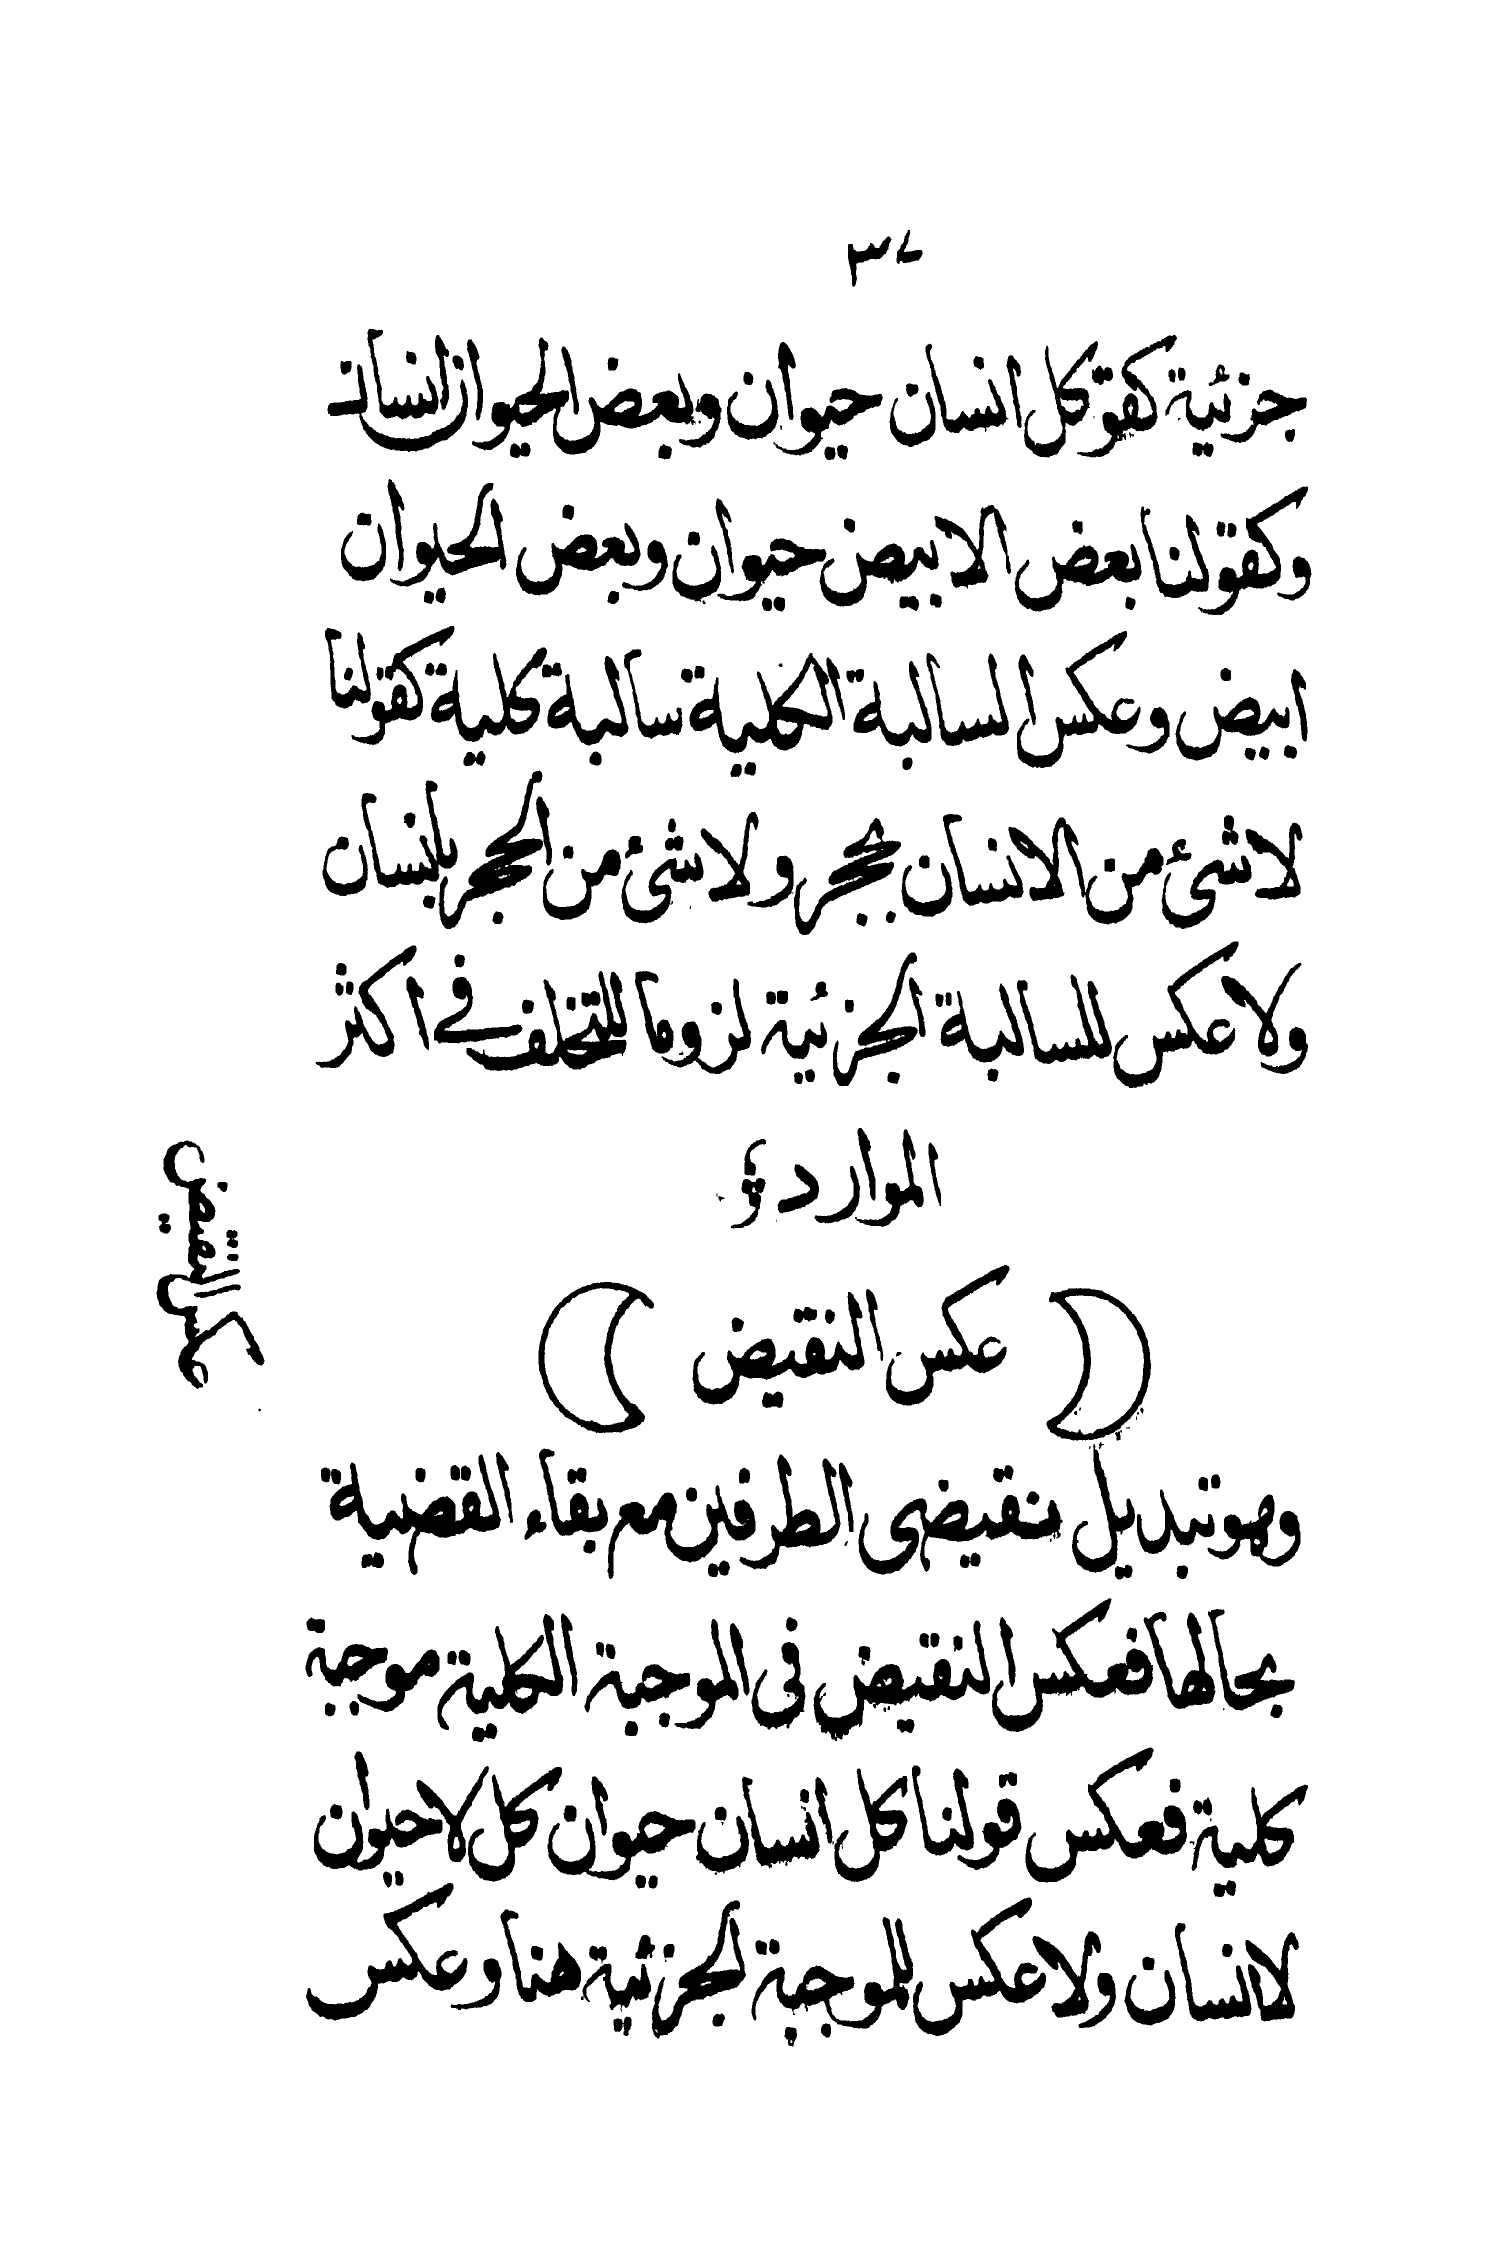 ٣٧
جزئية كقو كل انسان حيوان وبعض الحيوان انسان
وكقولنا بعض الابيض حيوان وبعض الحيوان
ابيض وعكس السالبة الكلية سالبة كلية كقولنا
لا شئ من الانسان بحجر ولا شئ من الحجر بانسان
ولا عكس للسالبة الجزئية لزوما للتخلف فى اكثر
الموارد
عكس النقيض
عكس النقيض
وهو تبديل نقيضى الطرفين مع بقاء القضية
بحالها فعكس النقيض فى الموجبة الكلية موجبة
كلية فعكس قولنا كل انسان حيوان كل لا حيوان
لا انسان ولا عكس للموجبة الجزئية هنا وعكس